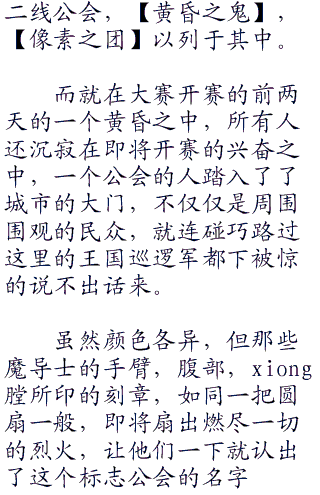 二线公会，【黄昏之鬼】，
【像素之团】以列于其中。
而就在大赛开赛的前两
天的一个黄昏之中，所有人
还沉寂在即将开赛的兴奋之
中，一个公会的人踏入了了
城市的大门，不仅仅是周围
围观的民众，就连碰巧路过
这里的王国巡逻军都下被惊
的说不出话来。
虽然颜色各异，但那些
魔导士的手臂，腹部，xiong
膛所印的刻章，如同一把圆
扇一般，即将扇出燃尽一切
的烈火，让他们一下就认出
了这个标志公会的名字